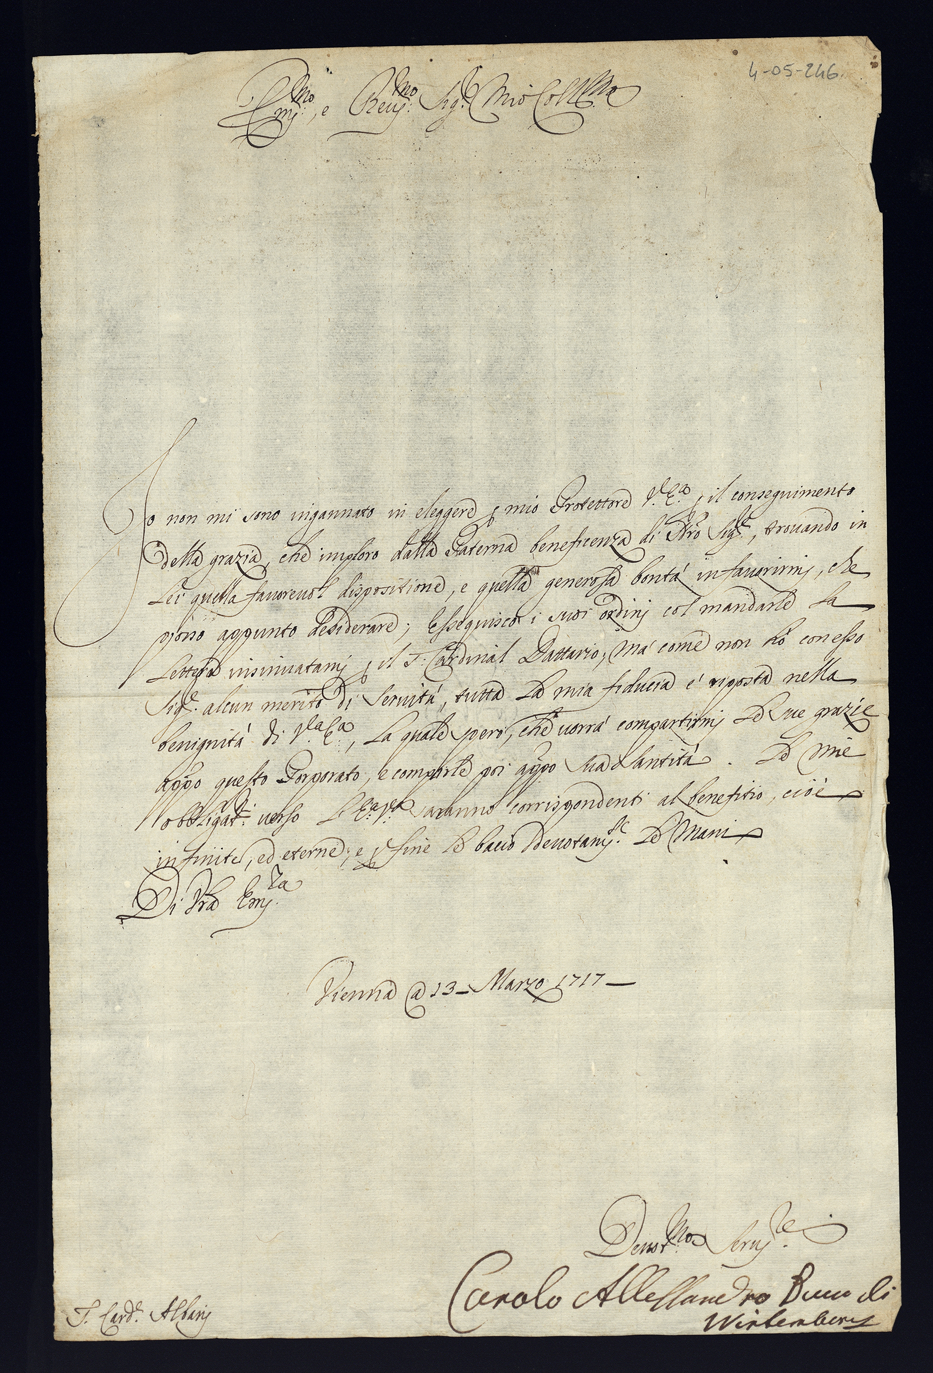 4-05-246
Em.mo, e Reu.mo Sig.r Mio Coll.mo
Io non mi sono ingannato in eleggere p mio Protettore V.ra Em.a p il conseguimento
della grazia, che imploro dalla Paterna beneficenza di Nro Sig.re, trouando in
Lei quella fauoreuol dispositione, e quella generosa bontà in fauorirmi, che
posso appunto desiderare; Esseguisco i suoi ordini col mandarle la
lettera insinuatami p il S.r Cardinal Dattario; ma come non hò con esso
Sig.re alcun merito di seruitù, tutta la mia fiducia è riposta nella
benignità di V.ra Em.a, la quale spero, che uorrà compartirmi le sue grazie
appo questo Porporato, e comporle poi appo Sua Santità. Le mie
obbligat.ni uerso l'Em.a V.ra saranno corrispondenti al benefitio, cioè
infinite, ed eterne; e p fine le bacio deuotam.te le Mani
Di Vra Em.za
Vienna a 13 Marzo 1717
Deuot.mo Seru.re
Carolo Allessandro Duca di
Wirtemberg
S. Card.l Albani